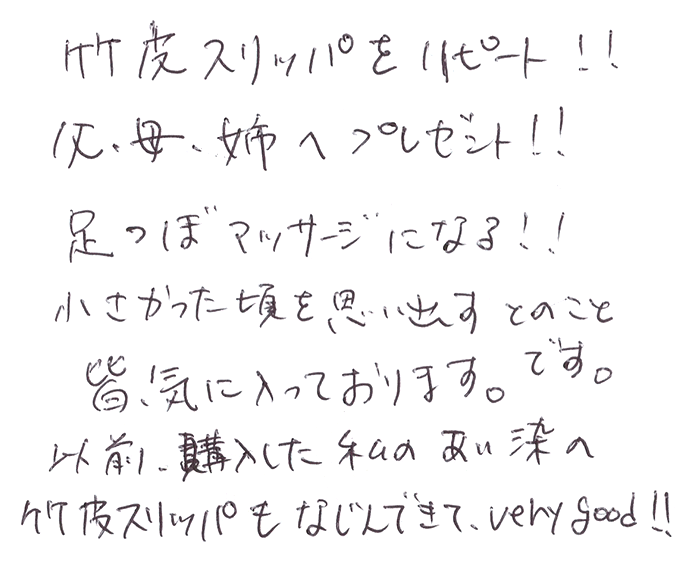 竹皮スリッパをリピート!!
父、母、姉へプレゼント!!
足つぼマッサージになる!!
小さかった頃を思い出すとのこと
です。
皆、気に入っております。
以前、購入した私のあい染の
竹皮スリッパもなじんできて、very good!!